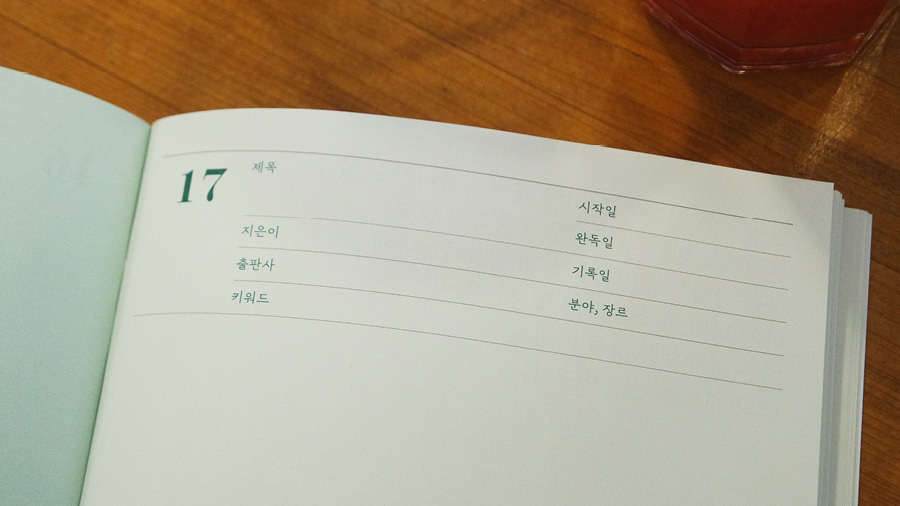 17
제목
시작일
지은이
완독일
출판사
기록일
키워드
분야, 장르